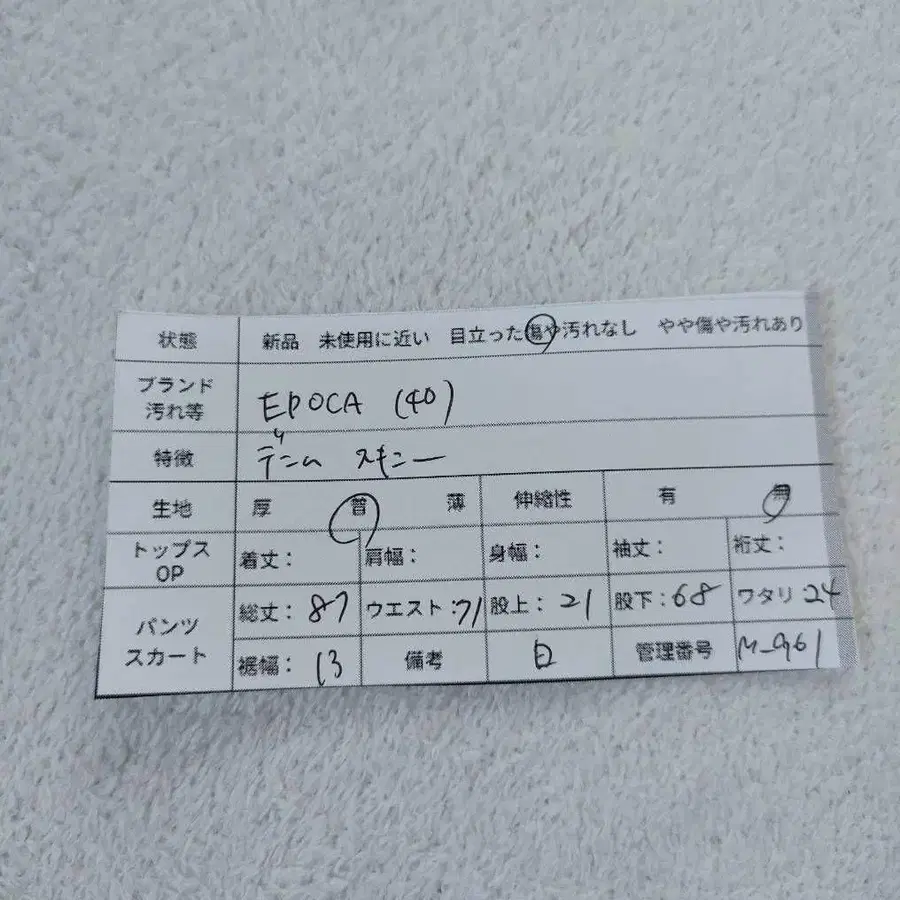 状態 新品 未使用に近い 目立った傷や汚れなし やや傷や汚れあり
ブランド
汚れ等 EPOCA (40)
特徴 デニム スキニー
生地 厚 普 薄 伸縮性 有 無
トップス
OP 着丈: 肩幅: 身幅: 袖丈: 裄丈:
パンツ
スカート 総丈: 87 ウエスト: 71 股上: 21 股下: 68 ワタリ: 24
裾幅: 13 備考 白 管理番号 M-961